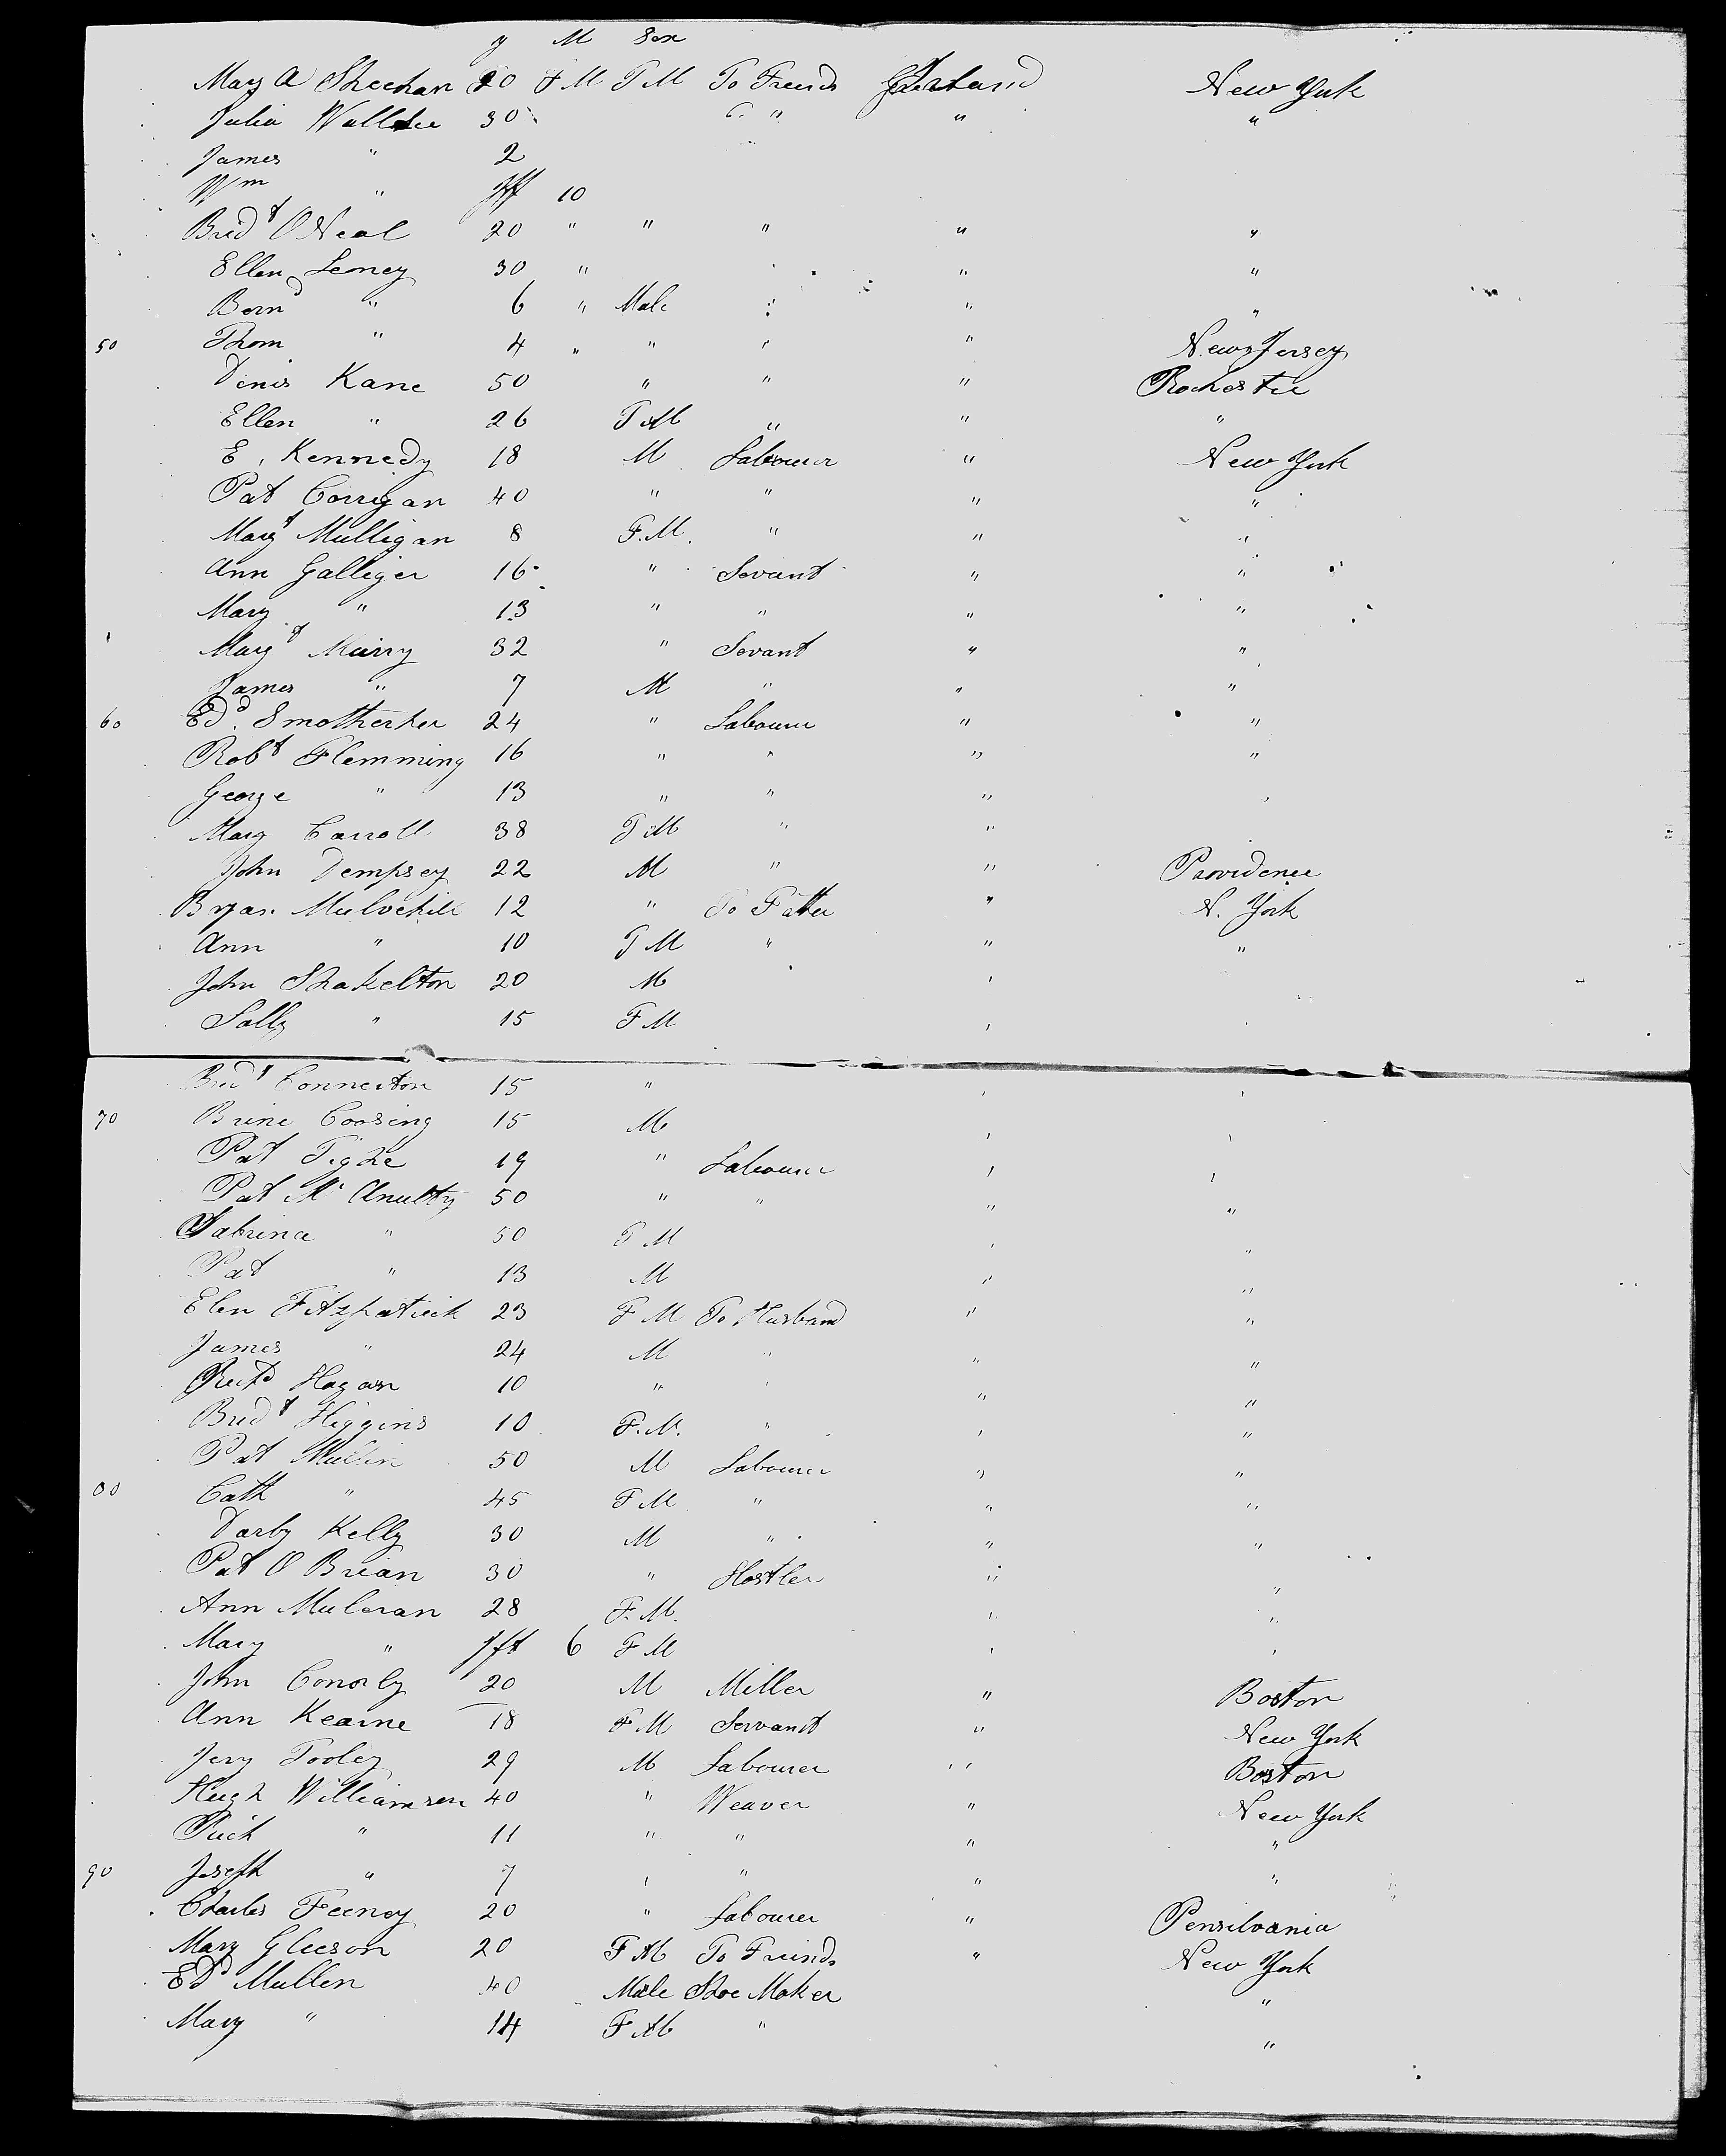 y M Sex
Mary A Sheehan 20 F M F M To Freinds Ireland New York
Julia 30 " " " "
James " 2
Wm " Jft 10
Bridt O Neal 20 " " " " "
Ellen Lemey 30 " " "
Bernd " 6 " Male " " "
50 Thom " 4 " " " " New Jersey
Denis Kane 50 " " " Rochester
Ellen " 26 F M " " "
E. Kennedy 18 M Labourer " New York
Pat Corrigan 40 " " " "
Margt Mulligan 8 F.M. " " "
Ann Galliger 16 " Sevant " "
Mary " 13 " " " "
Margt Murry 32 " Sevant " "
James " 7 M " " "
60 Edd. Smotherher 24 " Labourer " "
Robt Flemming 16 " " " "
George " 13 " " " "
Mary Carroll 38 F M " "
John Dempsey 22 M " " Providence
Bryan Mulvehill 12 " To Father " N. York
Ann " 10 F M " " "
John Shakelton 20 M "
Sally " 15 F M "
Bridt Connerton 15 " " "
70 Brine Coosing 15 M " "
Pat Tighe 19 " Labourer " "
Pat Mc Anulty 50 " " " "
Sabrina " 50 F M " "
Pat " 13 M " "
Elen Fitzpatrick 23 F M To Husband " "
James " 24 M " " "
Hagan 10 " " " "
Bridt Higgins 10 F.M. " " "
Pat Mullin 50 M Labourer " "
80 Cath " 45 F M " " "
Darby Kelly 30 M " " "
Pat O Brian 30 " Hostler " "
Ann Muloran 28 F.M. " "
Mary " Jft 6 F M " "
John Conorly 20 M Miller " Boston
Ann Kearne 18 F M Servant " New York
Jery Tooley 29 M Labourer " Boston
Hugh Williamson 40 " Weaver " New York
Rich " 11 " " " "
90 Joseph " 7 " " " "
Charles Feeney 20 " Labourer " Pensilvania
Mary Gleeson 20 F M To Freinds " New York
Edd Mullen 40 Male Shoe Maker "
Mary " 14 F M " "